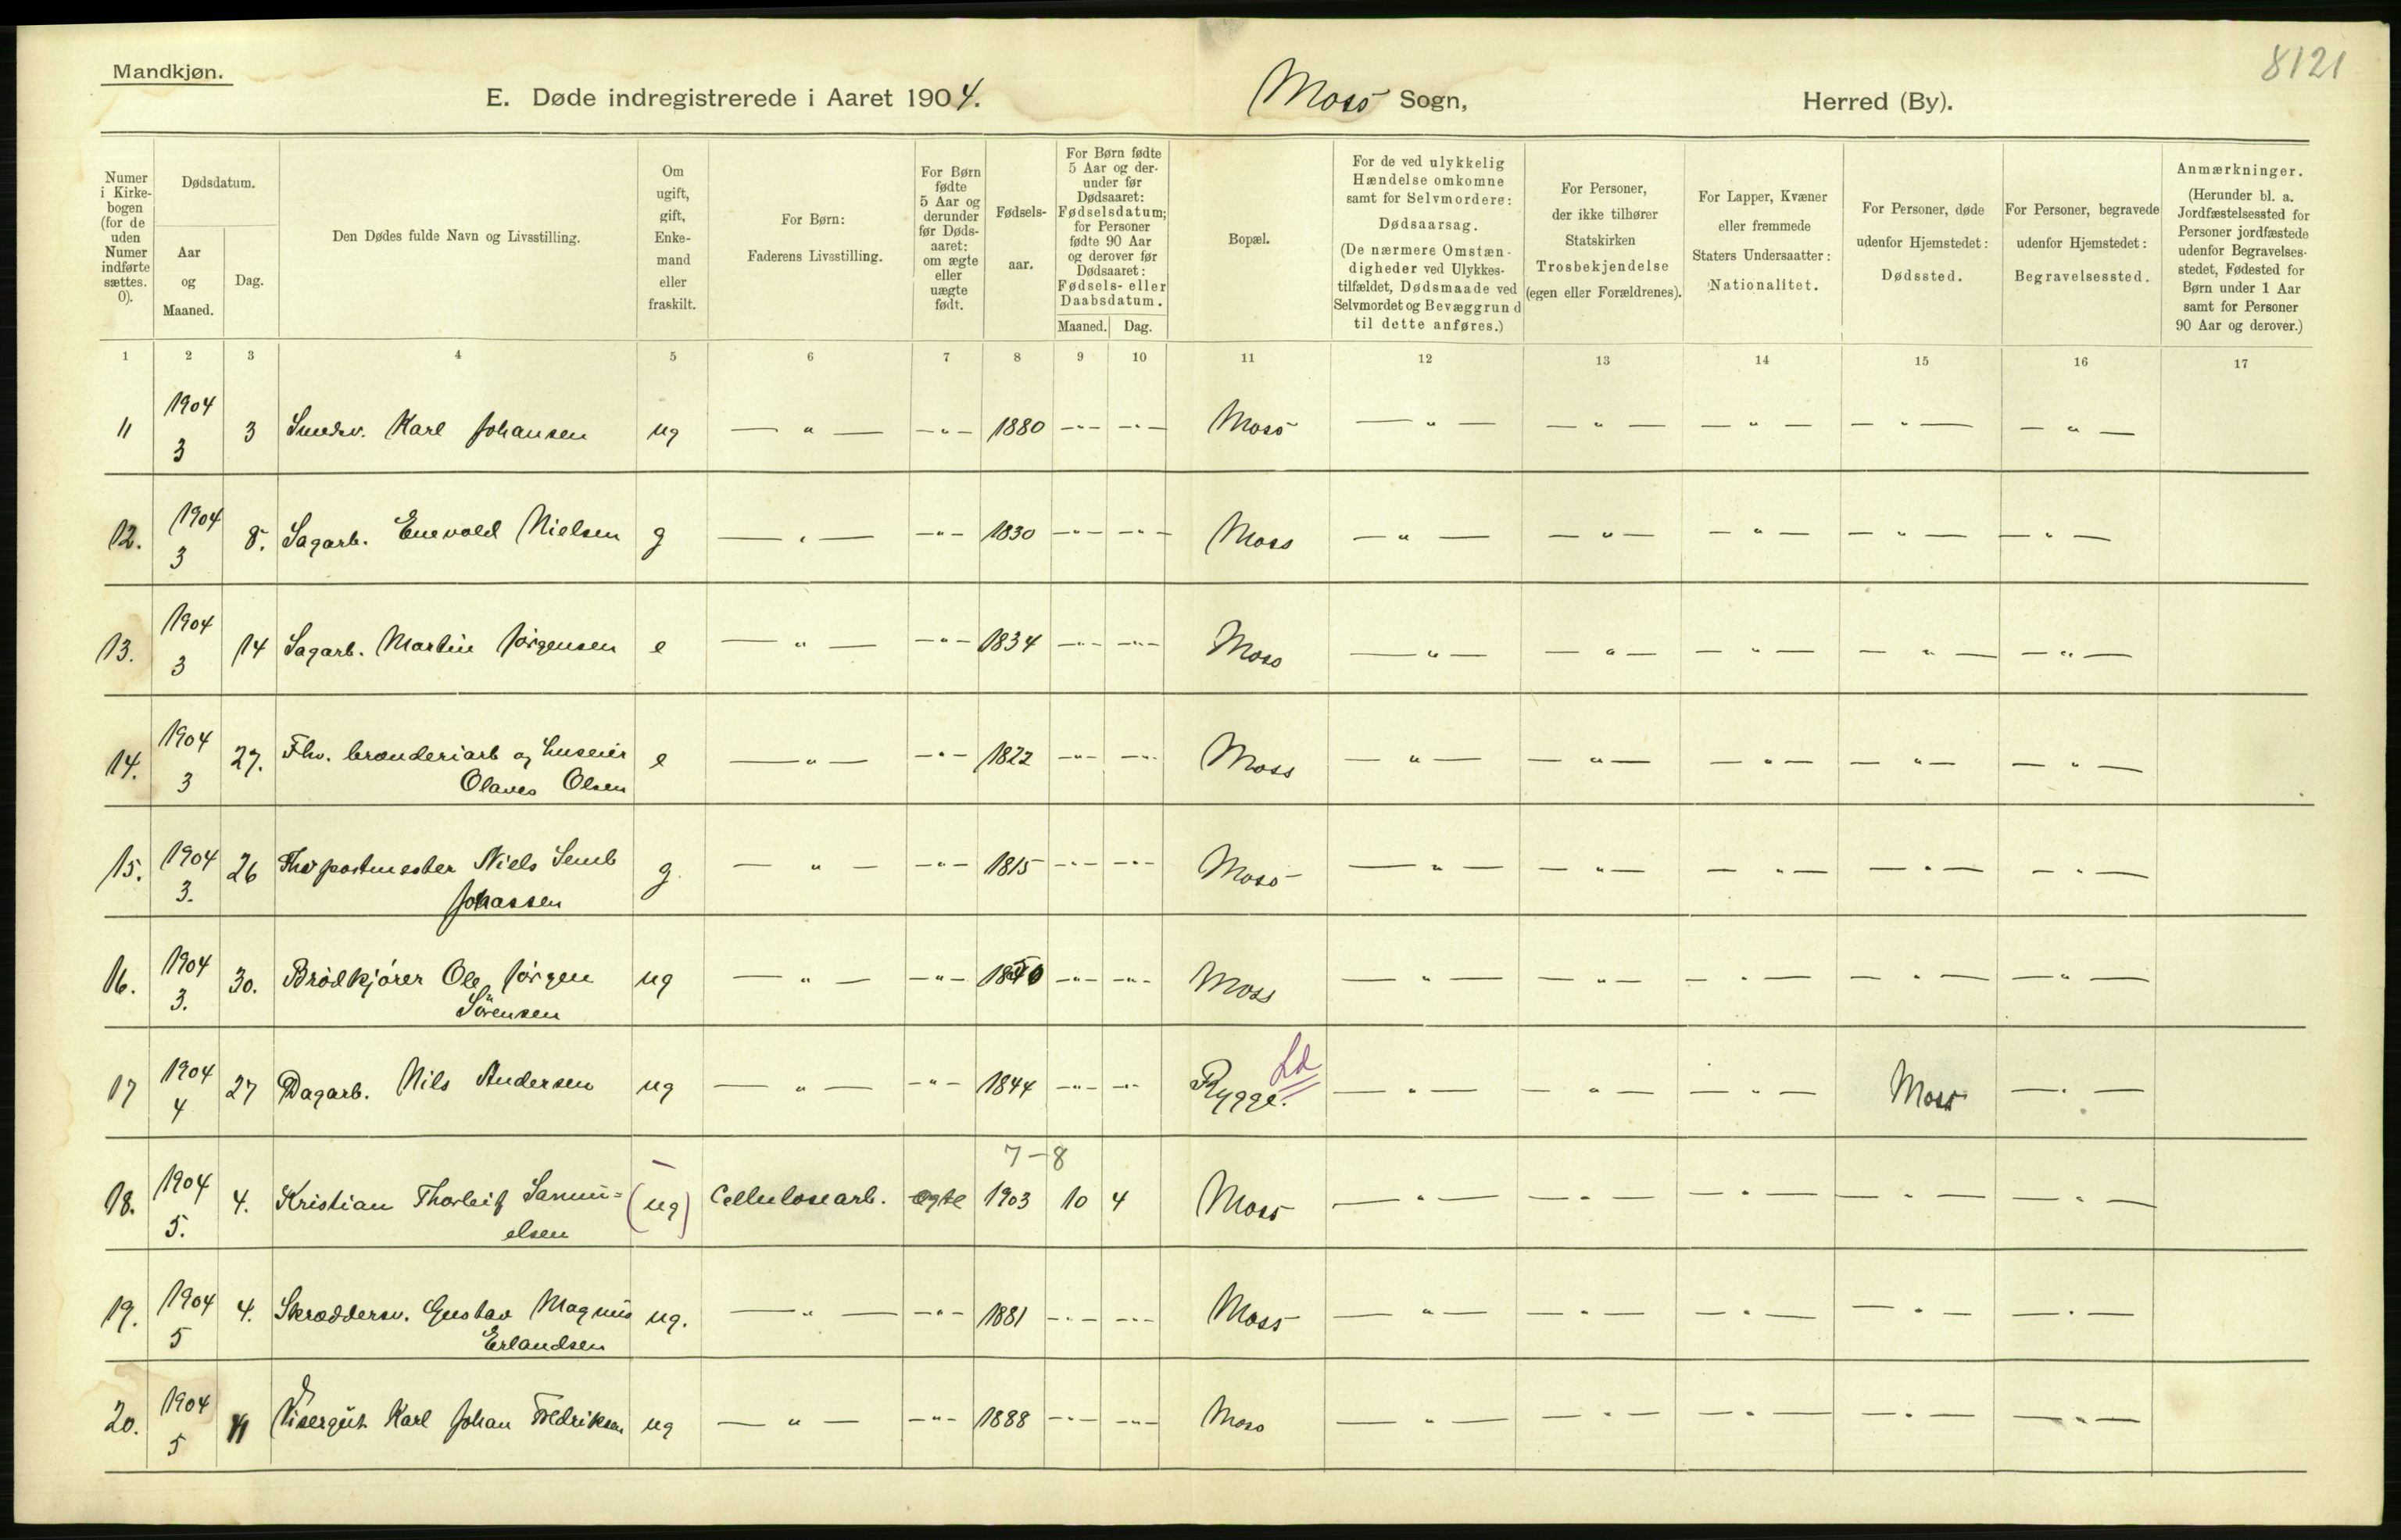 Mandkjøn.
8121
E. Døde indregistrerede i Aaret 1904.
Moss Sogn,
Herred (By).
Numer i Kirkebogen (for de uden Numer indførte sættes. 0).
Dødsdatum.
Aar og Maaned.
Dag.
Den Dødes fulde Navn og Livsstilling.
Om ugift, gift, Enkemand eller fraskilt.
For Børn:
Faderens Livsstilling.
For Børn fødte 5 Aar og derunder før Dødsaaret: om ægte eller uægte født.
Fødselsaar.
For Børn fødte 5 Aar og derunder før Dødsaaret: Fødselsdatum; for Personer fødte 90 Aar og derover før Dødsaaret: Fødsels- eller Daabsdatum.
Maaned. Dag.
Bopæl.
For de ved ulykkelig Hændelse omkomne samt for Selvmordere:
Dødsaarsag.
(De nærmere Omstændigheder ved Ulykkestilfældet, Dødsmaade ved Selvmordet og Bevæggrund til dette anføres.)
For Personer, der ikke tilhører Statskirken
Trosbekjendelse
(egen eller Forældrenes).
For Lapper, Kvæner eller fremmede Staters Undersaatter:
Nationalitet.
For Personer, døde udenfor Hjemstedet:
Dødssted.
For Personer, begravede udenfor Hjemstedet:
Begravelsessted.
Anmærkninger.
(Herunder bl. a. Jordfæstelsessted for Personer jordfæstede udenfor Begravelsesstedet, Fødested for Børn under 1 Aar samt for Personer 90 Aar og derover.)
1 2 3 4 5 6 7 8 9 10 11 12 13 14 15 16 17
11 1904 3 3 Smedsv. Karl Johansen ug — " — — " — 1880 — " — — " — Moss — " — — " — — " — — " — — " —
12. 1904 3 8. Sagarb. Enevold Nielsen g — " — — " — 1830 — " — — " — Moss — " — — " — — " — — " — — " —
13. 1904 3 14 Sagarb. Martin Jörgensen e — " — — " — 1834 — " — — " — Moss — " — — " — — " — — " — — " —
14. 1904 3 27. Fhv. brænderiarb og huseier Olaves Olsen e — " — — " — 1822 — " — — " — Moss — " — — " — — " — — " — — " —
15. 1904 3. 26 Fhv postmester Niels Semb Johassen g. — " — — " — 1815 — " — — " — Moss — " — — " — — " — — " — — " —
16. 1904 3. 30. Brödkjörer Ole Jörgen Sörensen ug — " — — " — — " — — " — Moss — " — — " — — " — — " — — " —
17 1904 4 27 Dagarb. Nils Andersen ug — " — — " — 1844 — " — — " — Rygge. Ld — " — — " — — " — Moss — " —
7-8
18. 1904 5. 4. Kristian Thorleif Samuelsen (ug) Cellulosearb. ægte 1903 10 4 Moss — " — — " — — " — — " — — " —
19. 1904 5 4. Skræddersv. Gustav Magnus Erlandsen ug. — " — — " — 1881 — " — — " — Moss — " — — " — — " — — " — — " —
20. 1904 5 11 Visergut Karl Johan Fredriksen ug — " — — " — 1888 — " — — " — Moss — " — — " — — " — — " — — " —